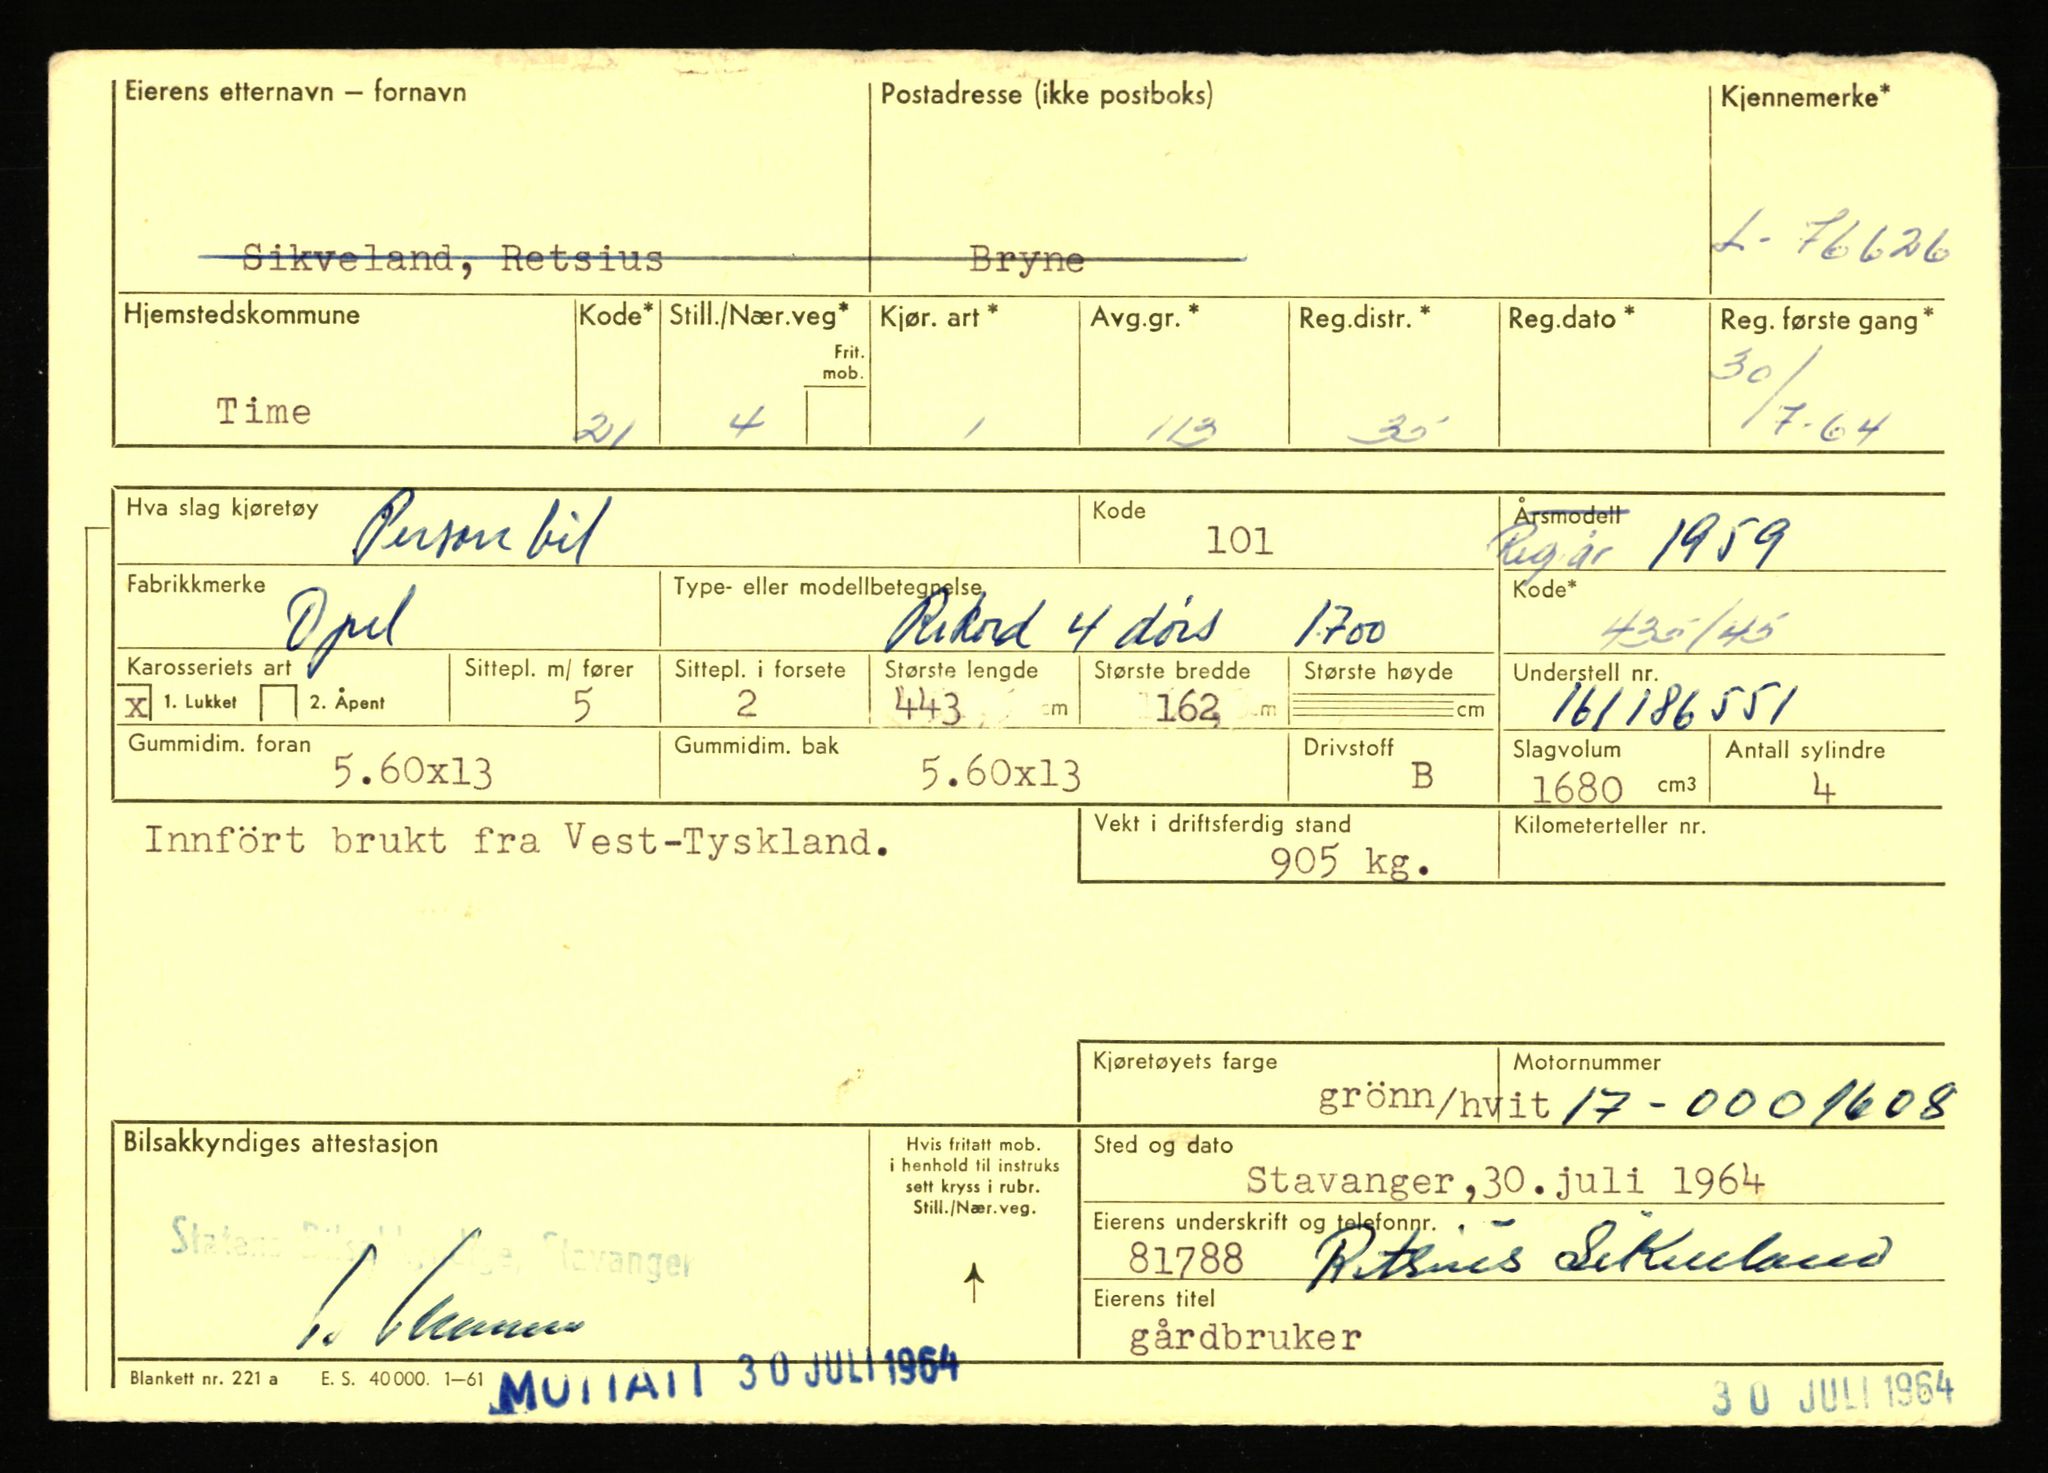 Eierens etternavn – fornavn
Postadresse (ikke postboks)
Kjennemerke*
Sikveland, Retsius
Bryne
L- 76626
Hjemstedskommune
Kode*
Still./Nær.veg*
Frit. mob.
Kjør. art *
Avg.gr. *
Reg.distr. *
Reg.dato *
Reg. første gang*
Time
21
4
1
113
35
30/7-64
Hva slag kjøretøy
Person bil
Kode
101
Årsmodell
Reg. år 1959
Fabrikkmerke
Opel
Type- eller modellbetegnelse
Rekord 4 dørs 1700
Kode*
435/45
Karosseriets art
x 1. Lukket 2. Åpent
Sittepl. m/ fører
5
Sittepl. i forsete
2
Største lengde
443 cm
Største bredde
162, m
Største høyde
cm
Understell nr.
161186551
Gummidim. foran
5.60x13
Gummidim. bak
5.60x13
Drivstoff
B
Slagvolum
1680 cm3
Antall sylindre
4
Innfört brukt fra Vest-Tyskland.
Vekt i driftsferdig stand
905 kg.
Kilometerteller nr.
Kjøretøyets farge
grönn/hvit
Motornummer
17-0001608
Bilsakkyndiges attestasjon
Statens Bilsakkyndige, Stavanger
Hvis fritatt mob.
i henhold til instruks
sett kryss i rubr.
Still./Nær.veg.
Sted og dato
Stavanger,30.juli 1964
Eierens underskrift og telefonnr.
81788 Retsius Sikveland
Eierens titel
gårdbruker
Blankett nr. 221 a E. S. 40 000. 1–61
MOTTATT 30 JULI 1964
30 JULI 1964